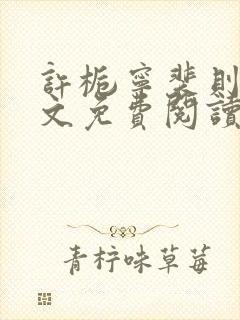 許栀寧裴則
文免費閱讀
青柠味草莓